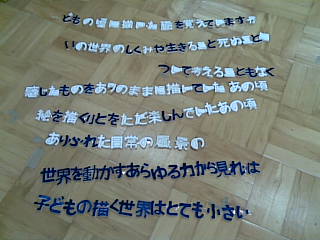 子どもの頃に描いた絵を覚えていますか
この世界のしくみや生きること死ぬこと
ついて考えることもなく
感じたものをありのままに描いていた あの頃
絵を描くことをただ楽しんでいたあの頃
ありふれた日常の風景の
世界を動かすあらゆる力から見れば
子どもの描く世界はとても小さい